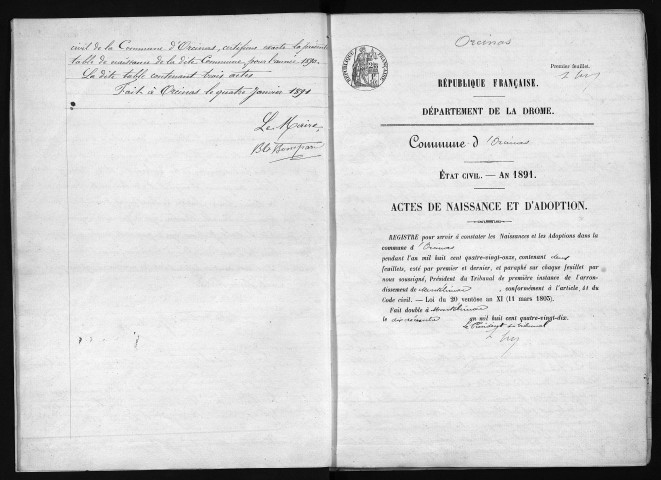 civil de la Commune d'Orcinas, certifions exacte la présente
table de naissance de la dite Commune, pour l'année 1890.
La dite table contenant trois actes
Fait à Orcinas le quatre Janvier 1891
Le Maire,
Orcinas
Premier feuillet.
RÉPUBLIQUE FRANÇAISE.
DÉPARTEMENT DE LA DROME.
Commune d'Orcinas
ÉTAT CIVIL. — AN 1891.
ACTES DE NAISSANCE ET D'ADOPTION.
REGISTRE pour servir à constater les Naissances et les Adoptions dans la
commune d'Orcinas
pendant l'an mil huit cent quatre-vingt-onze, contenant deux
feuillets, coté par premier et dernier, et paraphé sur chaque feuillet par
nous soussigné, Président du Tribunal de première instance de l'arron-
dissement de Montélimar, conformément à l'article 41 du
Code civil. — Loi du 20 ventôse an XI (11 mars 1803).
Fait double à Montélimar
le dix décembre an mil huit cent quatre-vingt-dix.
Le Président du tribunal